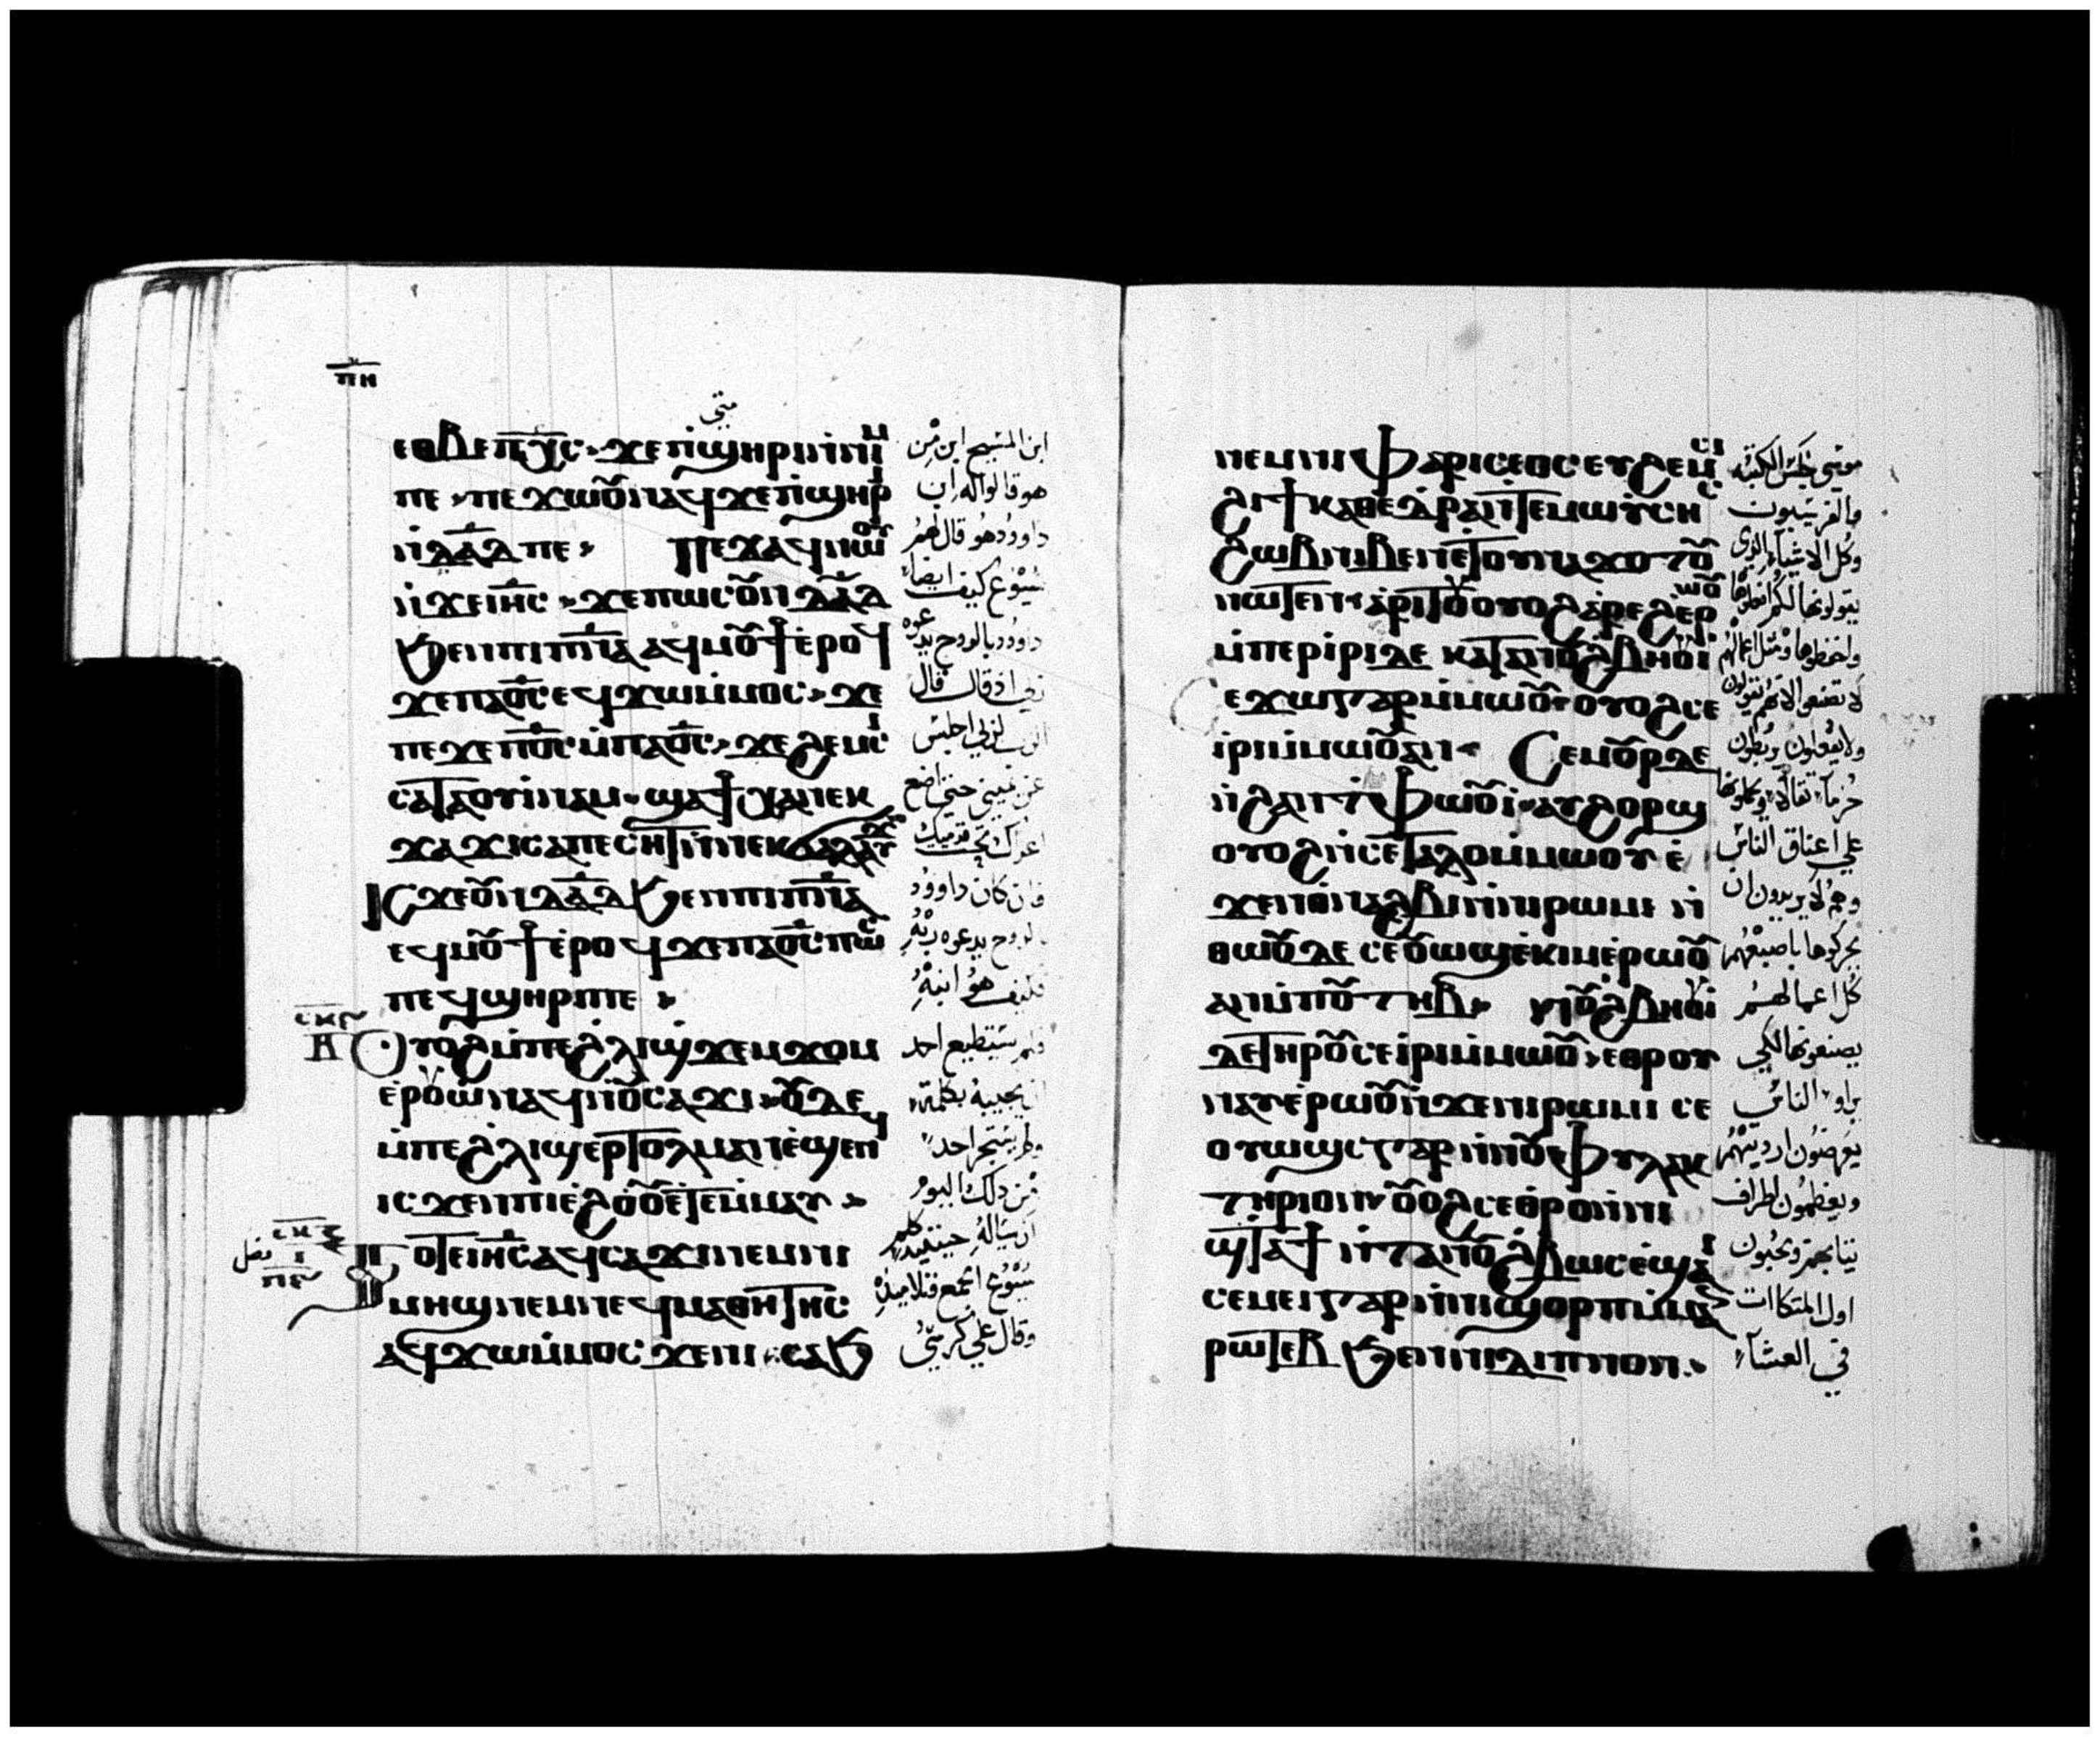 ⲡⲏ
متى
ⲉⲑⲃⲉ ⲡⲭ̅ⲥ̅ ϫⲉ ⲡ̀ϣⲏⲣⲓ ⲛ̀ⲛⲓⲙ
ⲡⲉ ⲡⲉϫⲱⲟⲩ ⲛⲁϥ ϫⲉ ⲡ̀ϣⲏⲣⲓ
ⲛ̀ⲇⲁ̅ⲇ ⲡⲉ ⲡⲉϫⲁϥ ⲛⲱⲟⲩ
ⲛ̀ϫⲉ ⲓⲏ̅ⲥ ϫⲉ ⲡⲱⲥ ⲟⲩⲛ ⲇⲁ̅ⲇ
ϧⲉⲛ ⲡⲓⲡ̅ⲛ̅ⲁ ⲁϥⲙⲟⲩϯ ⲉ̀ⲣⲟϥ
ϫⲉ ⲡⲁⲟ̅ⲥ̅ ⲉϥϫⲱ ⲙ̀ⲙⲟⲥ ϫⲉ
ⲡⲉϫⲉ ⲡⲟ̅ⲥ̅ ⲙ̀ⲡⲁⲟ̅ⲥ̅ ϫⲉ ϩⲉⲙⲥⲓ
ⲥⲁⲧⲁⲟⲩⲓ̀ⲛⲁⲙ ϣⲁϯⲭⲁ ⲛⲉⲕ
ϫⲁϫⲓ ⲥⲁⲡⲉⲥⲏⲧ ⲛ̀ⲛⲉⲕϭⲁⲗⲁⲩϫ
ⲓⲥϫⲉ ⲟⲩⲛ ⲇⲁ̅ⲇ ϧⲉⲛ ⲡⲓⲡ̅ⲛ̅ⲁ
ⲉϥⲙⲟⲩϯ ⲉ̀ⲣⲟϥ ϫⲉ ⲡⲁⲟ̅ⲥ̅ ⲡⲱⲥ
ⲡⲉϥϣⲏⲣⲓ ⲡⲉ
ⲟⲩⲟϩ ⲙ̀ⲡⲉ ϩ̀ⲗⲓ ϣ̀ϫⲉⲙϫⲟⲙ
ⲉ̀ⲣⲟⲩⲱ̀ ⲛⲁϥ ⲛ̀ⲟⲩⲥⲁϫⲓ ⲟⲩⲇⲉ
ⲙ̀ⲡⲉ ϩ̀ⲗⲓ ϣⲉⲣⲧⲟⲗⲙⲁⲛ ⲉ̀ϣⲉⲛϥ
ⲓⲥϫⲉⲛ ⲡⲓⲉ̀ϩⲟⲟⲩ ⲉⲧⲉⲙ̀ⲙⲁⲩ
ⲧⲟⲧⲉ ⲓⲏ̅ⲥ ⲁϥⲥⲁϫⲓ ⲛⲉⲙ ⲛⲓ
ⲙⲏϣ ⲛⲉⲙ ⲛⲉϥⲙⲁⲑⲏⲧⲏⲥ
ⲉϥϫⲱ ⲙ̀ⲙⲟⲥ ϫⲉ ⲛⲓⲥⲁϧ
ابن المسيح ابن من
هو قالوا له ابن
داوود هو قال لهم
يسوع كيف ايضا
داوود بالروح يدعوه
ربي اذ قال قال
الرب لربي اجلس
عن يميني حتى اضع
اعداك تحت قدميك
فان كان داوود
بالروح يدعوه ربه
فكيف هو ابنه
فلم يستطيع احد
ان يجيبه بكلمة
ولم يستجر احد
من ذلك اليوم
ان يساله حينيذ كلم
يسوع الجمع وتلاميذه
وقال على كرسي
ⲛⲉⲙ ⲛⲓⲫⲁⲣⲓⲥⲉⲟⲥ ⲉⲩϩⲉⲙⲥⲓ
ϩⲓ ϯⲕⲁⲑⲉⲇⲣⲁ ⲛ̀ⲧⲉ ⲙⲱⲩⲥⲏⲥ
ϩⲱⲃ ⲛⲓⲃⲉⲛ ⲉⲧⲟⲩⲛⲁϫⲟⲧⲟⲩ
ⲛⲱⲧⲉⲛ ⲁⲣⲓⲧⲟⲩ ⲟⲩⲟϩ ⲁⲣⲉϩ ⲉⲣⲱⲟⲩ
ⲙ̀ⲡⲉⲣⲓ̀ⲣⲓ ⲇⲉ ⲕⲁⲧⲁ ⲛⲟⲩϩ̀ⲃⲏⲟⲩⲓ̀
ⲥⲉϫⲱ ⲅⲁⲣ ⲙ̀ⲙⲱⲟⲩ ⲟⲩⲟϩ ⲥⲉ
ⲓ̀ⲣⲓ ⲙ̀ⲙⲱⲟⲩ ⲁⲛ ⲥⲉⲙⲟⲩⲣ ⲇⲉ
ⲛ̀ϩⲁⲛⲉⲧⲫⲱⲟⲩⲓ̀ ⲉⲩϩⲟⲣϣ
ⲟⲩⲟϩ ⲛ̀ⲥⲉⲧⲁⲗⲟ ⲙ̀ⲙⲱⲟⲩ ⲉ̀
ϫⲉⲛ ⲑⲛⲁϩⲃⲓ ⲛ̀ⲛⲓⲣⲱⲙⲓ ⲛ̀
ⲑⲱⲟⲩ ⲇⲉ ⲥⲉⲟⲩⲱϣ ⲉ̀ⲕⲓⲙ ⲉ̀ⲣⲱⲟⲩ
ⲁⲛ ⲙ̀ⲡⲟⲩⲧⲏⲃ ⲛⲟⲩϩ̀ⲃⲏⲟⲩⲓ̀
ⲇⲉ ⲧⲏⲣⲟⲩ ⲥⲉⲓ̀ⲣⲓ ⲙ̀ⲙⲱⲟⲩ ⲉⲑⲣⲟⲩ
ⲛⲁⲩ ⲉ̀ⲣⲱⲟⲩ ⲛ̀ϫⲉ ⲛⲓⲣⲱⲙⲓ ⲥⲉ
ⲟⲩⲱϣⲥ ⲅⲁⲣ ⲛ̀ⲛⲟⲩⲫⲩⲗⲁⲕ
ⲧⲏⲣⲓⲟⲛ ⲟⲩⲟϩ ⲥⲉⲑⲣⲟ ⲛ̀ⲛⲓ
ϣⲧⲁϯ ⲛ̀ⲧⲉ ⲛⲟⲩϩ̀ⲃⲱⲥ ⲉ̀ϣⲓⲁⲓ
ⲥⲉⲙⲉⲓ ⲅⲁⲣ ⲛ̀ⲛⲓϣⲟⲣⲡ ⲙ̀ⲙⲁ
ⲣⲱⲧⲉⲃ ϧⲉⲛ ⲛⲓⲇⲓⲡⲛⲟⲛ
موسى جلس الكتبة
والفريسيون
وكل الاشياء الذي
يقولونها لكم افعلوها
واحفظوها ومثل اعمالهم
لا تصنعوا لانهم يقولون
ولا يفعلون يربطون
حزما ثقالة ويحملونها
على اعناق الناس
وهم لا يريدون ان
يحركوها باصبعهم
كل اعمالهم
يصنعونها لكي
يراو الناس
يعرضون ارديتهم
ويعظمون اطراف
ثيابهم ويحبون
اول المتكاات
في العشاء